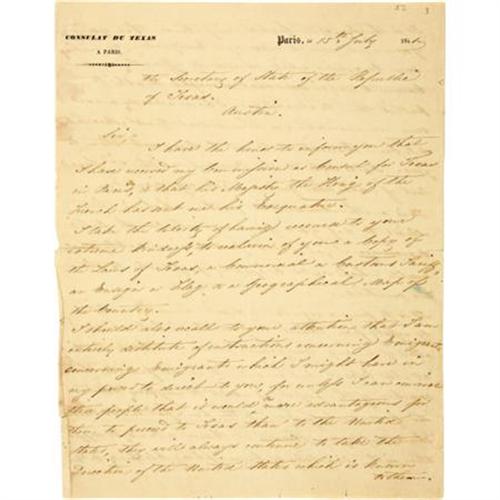 CONSULAT DU TEXAS
A PARIS.
Paris, 15th July 184
the Secretary of State of the Republic
of Texas.
Austin.
Sir,
I have the honor to inform you that
I have received my Commission as Consul for Texas
in Paris, & that his Majesty the King of the
French has sent me his Exequatur.
I take the liberty of having recourse to your
to of you a Copy of
the Laws of Texas, a Commercial & Customs Tariff,
an Ensign or Flag & a Geographical Map of
the Country.
I should also recall to your attention that I am
entirely destitute of instructions concerning Emigrants
concerning emigrants which I might have in
my power to direct to you, for unless I can convince
these people that it would be more advantageous for
them to proceed to Texas than to the United
States, they will always continue to take the
direction of the United States which is known
to them.